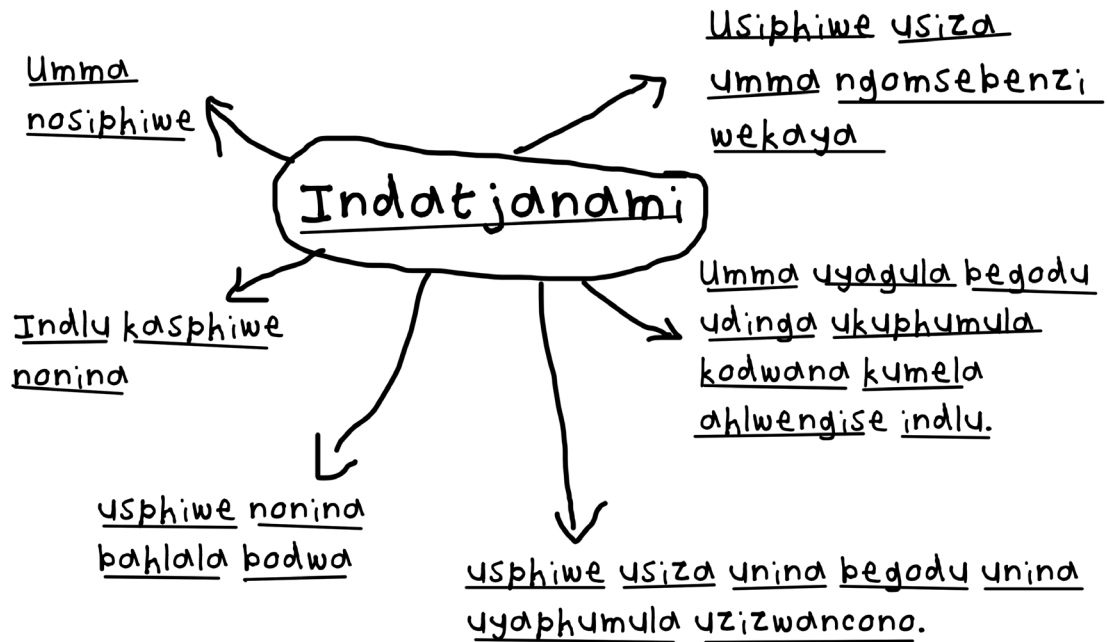 Umma
nosiphiwe
Usiphiwe usiza
umma ngomsebenzi
wekaya
Indatjanami
Indlu kasphiwe
nonina
Umma uyagula begodu
udinga ukuphumula
kodwana kumela
ahlwengise indlu.
usphiwe nonina
bahlala bodwa
usphiwe usiza unina begodu unina
uyaphumula uzizwancono.